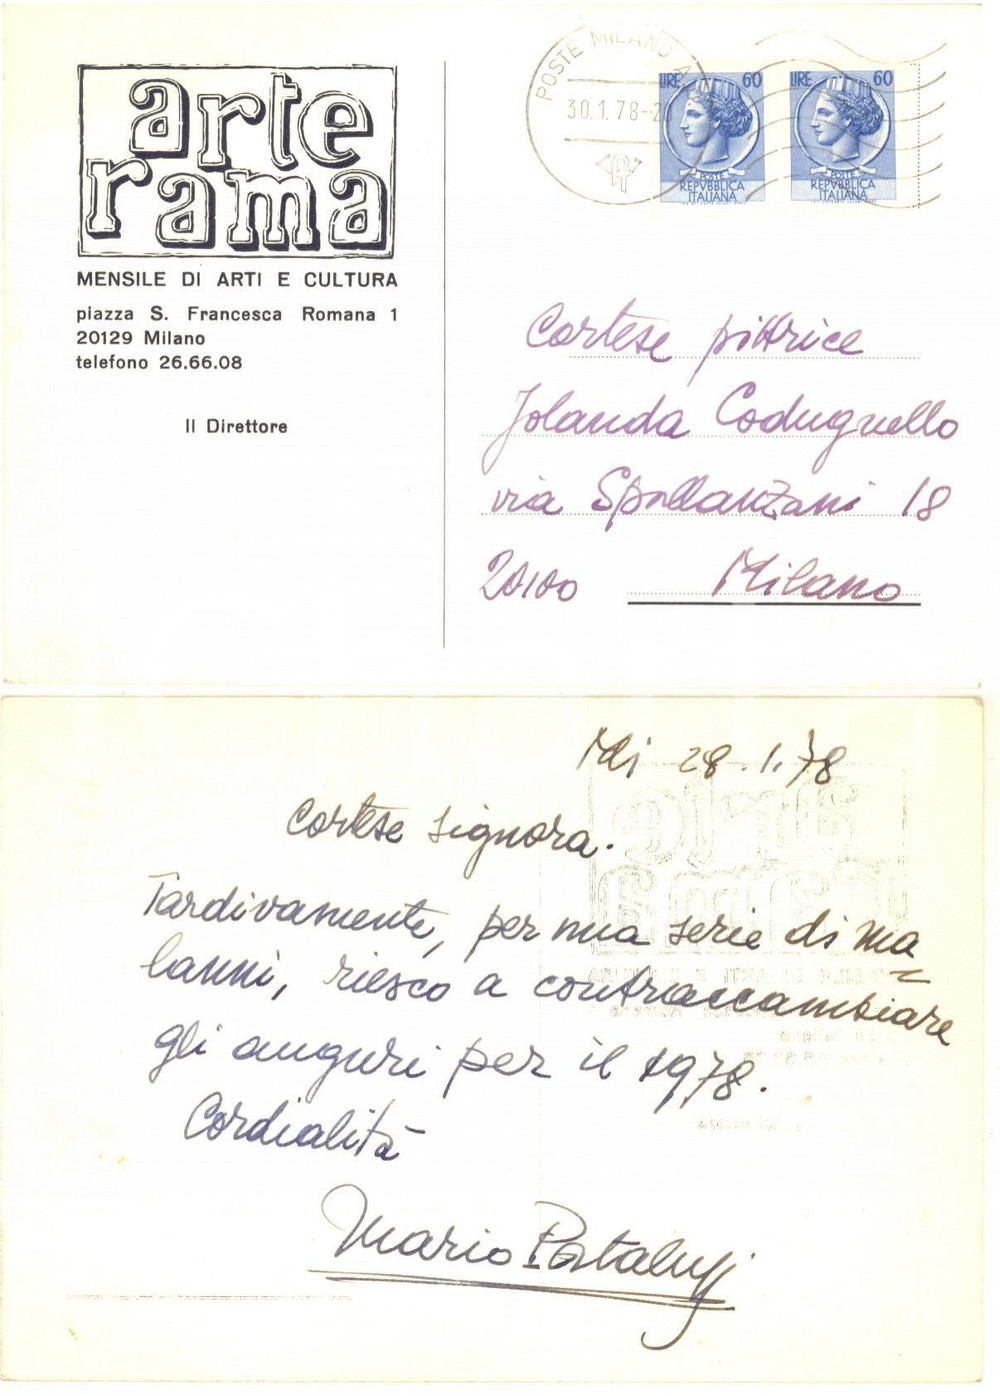 arte
rama
MENSILE DI ARTI E CULTURA
piazza S. Francesca Romana 1
20129 Milano
telefono 26.66.08
Il Direttore
POSTE MILANO A
30.1.78-20
LIRE 60
POSTE
REPVBBLICA
ITALIANA
LIRE 60
POSTE
REPVBBLICA
ITALIANA
Cortese pittrice
Jolanda Codugnello
via Spallanzani 18
20100 Milano
Mi 28.1.78
Cortese signora.
Tardivamente, per una serie di ma
lanni, riesco a contraccambiare
gli auguri per il 1978.
Cordialità
Mario Portalupi